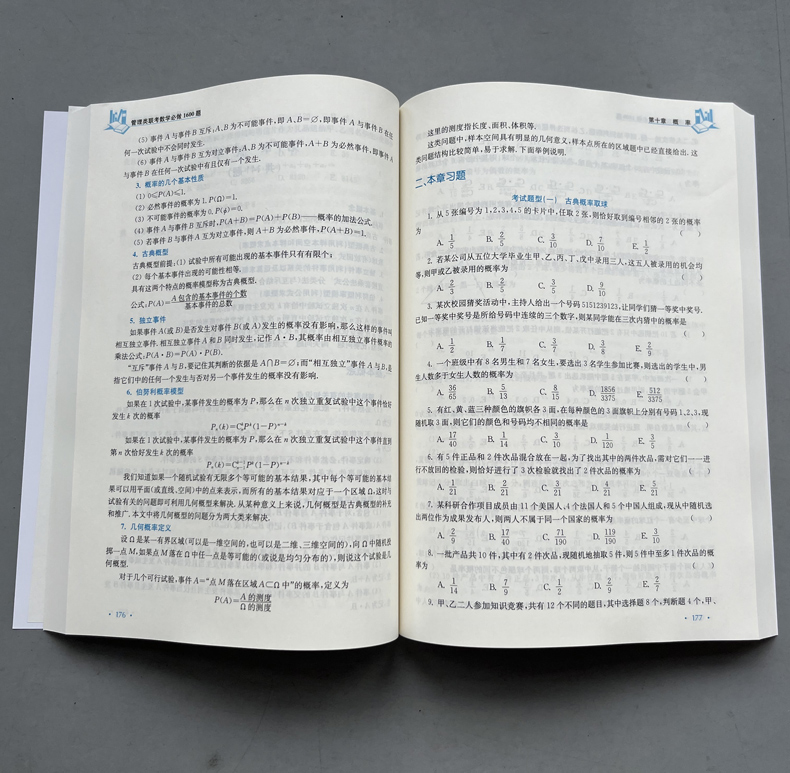 管理类联考数学必做1600题
(5) 事件 A 与事件 B 互斥:A、B 为不可能事件,即 A∩B=∅,即事件 A 与事件 B 在任
何一次试验中不会同时发生.
(6) 事件 A 与事件 B 互为对立事件:A∩B 为不可能事件,A+B 为必然事件,即事件 A
与事件 B 在任何一次试验中有且仅有一个发生.
3. 概率的几个基本性质
(1) 0≤P(A)≤1.
(2) 必然事件的概率为 1,P(Ω)=1.
(3) 不可能事件的概率为 0,P(∅)=0.
(4) 事件 A 与事件 B 互斥时,P(A+B)=P(A)+P(B)——概率的加法公式.
(5) 若事件 B 与事件 A 互为对立事件,则 A+B 为必然事件,P(A+B)=1.
4. 古典概型
古典概型前提:(1) 试验中所有可能出现的基本事件只有有限个;
(2) 每个基本事件出现的可能性相等.
具有这两个特点的概率模型称为古典概型.
公式:P(A)=A 包含的基本事件的个数/基本事件的总数
5. 独立事件
如果事件 A(或 B)是否发生对事件 B(或 A)发生的概率没有影响,那么这样的事件叫
相互独立事件. 相互独立事件 A 和 B 同时发生,记作 A·B,其概率由相互独立事件概率的
乘法公式:P(A·B)=P(A)·P(B).
“互斥”事件 A 与 B,要记住其判断的依据是 A∩B=∅;而“相互独立”事件 A 与 B,是
指它们中的任何一个发生与否对另一个事件发生的概率没有影响.
6. 伯努利概率模型
如果在 1 次试验中,某事件发生的概率为 P,那么在 n 次独立重复试验中这个事件恰好
发生 k 次的概率
如果在 1 次试验中,某事件发生的概率为 P,那么在 n 次独立重复试验中这个事件直到
第 n 次恰好发生 k 次的概率
我们知道如果一个随机试验有无限多个等可能的基本结果,其中每个等可能的基本结
果可以用平面(或直线、空间)中的点来表示,而所有的基本结果对应于一个区域 Ω,这时与
试验有关的问题即可利用几何模型来解决. 从某种意义上来说,几何概型是古典概型的补充
和推广. 本文中将几何概型的问题分为两大类来解决.
7. 几何概率定义
设 Ω 是某一有界区域(可以是一维空间的,也可以是二维、三维空间的),向 Ω 中随机投
掷一点 M,如果点 M 落在 Ω 中任一点是等可能的(或说是均匀分布的),则说这个试验是几
何概型.
对于几个可行试验,事件 A=“点 M 落在区域 A⊂Ω 中”的概率,定义为
P(A)=A 的测度/Ω 的测度
· 176 ·
第十章 概 率
这里的测度指长度、面积、体积等.
这类问题中,样本空间具有明显的几何意义,样本点所在的区域题中已经直接给出. 这
类问题结构比较简单,易于求解. 下面举例说明.
二、本章习题
考试题型(一) 古典概率取球
1. 从 5 张编号为 1,2,3,4,5 的卡片中,任取 2 张,则恰好取到编号相邻的 2 张的概率
为 ( )
A. 1/5 B. 2/5 C. 3/10 D. 7/10 E. 1/2
2. 若某公司从五位大学毕业生甲、乙、丙、丁、戊中录用三人,这五人被录用的机会均
等,则甲或乙被录用的概率为 ( )
A. 2/3 B. 2/5 C. 3/5 D. 9/10
3. 某次校园猜奖活动中,主持人给出一个号码 5151239123,让同学们猜一等奖中奖号.
已知一等奖中奖号是所给号码中连续的三个数字,则某同学能在三次内猜中的概率是
( )
A. 1/2 B. 1/7 C. 3/7 D. 3/8 E. 2/9
4. 一个班级中有 8 名男生和 7 名女生,要选出 3 名学生参加比赛,则选出的学生中,男
生人数多于女生人数的概率为 ( )
A. 36/65 B. 5/13 C. 8/15 D. 1856/3375 E. 512/3375
5. 有红、黄、蓝三种颜色的旗帜各 3 面,在每种颜色的 3 面旗帜上分别有号码 1,2,3,现
随机取 3 面,则它们的颜色和号码均不相同的概率是 ( )
A. 17/40 B. 1/14 C. 3/10 D. 1/120 E. 3/5
6. 有 5 件正品和 2 件次品混合放在一起,为了找出其中的两件次品,需对它们一一进
行不放回的检验,则恰好进行了 3 次检验就找出了 2 件次品的概率为 ( )
A. 1/21 B. 2/21 C. 3/21 D. 4/21 E. 5/21
7. 某科研合作项目成员由 11 个美国人、4 个法国人和 5 个中国人组成,现从中随机选
出两位作为成果发布人,则两人不属于同一个国家的概率为 ( )
A. 2/9 B. 17/40 C. 71/190 D. 119/190 E. 3/10
8. 一批产品共 10 件,其中有 2 件次品,现随机地抽取 5 件,则 5 件中至多 1 件次品的概
率为 ( )
A. 1/14 B. 7/9 C. 1/2 D. 2/9 E. 2/7
9. 甲、乙二人参加知识竞赛,共有 12 个不同的题目,其中选择题 8 个,判断题 4 个,甲、
· 177 ·